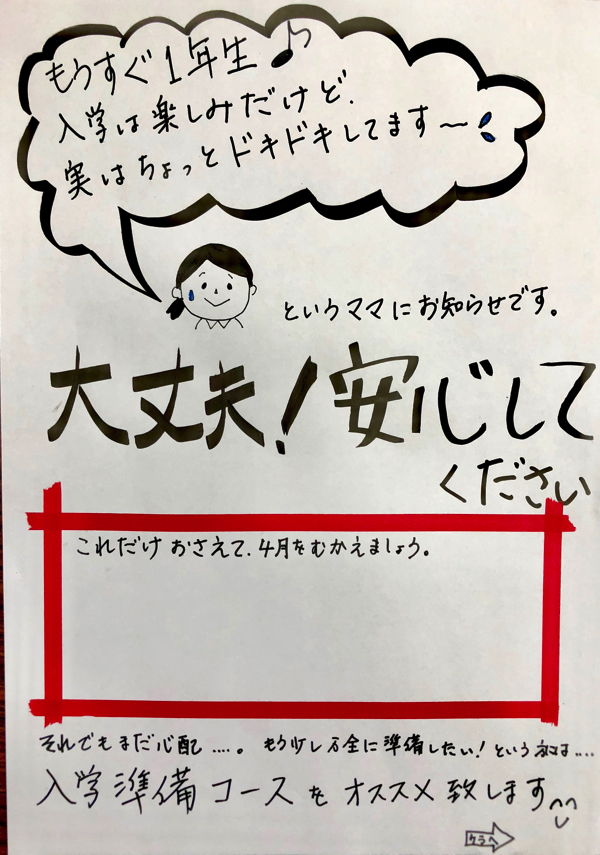 もうすぐ1年生♪
入学は楽しみだけど、
実はちょっとドキドキしてます〜
というママにお知らせです。
大丈夫!安心して
ください
これだけおさえて、4月をむかえましょう。
それでもまだ心配....。もう少し万全に準備したい!という方は....
入学準備コースをオススメ致します^^
ウラへ